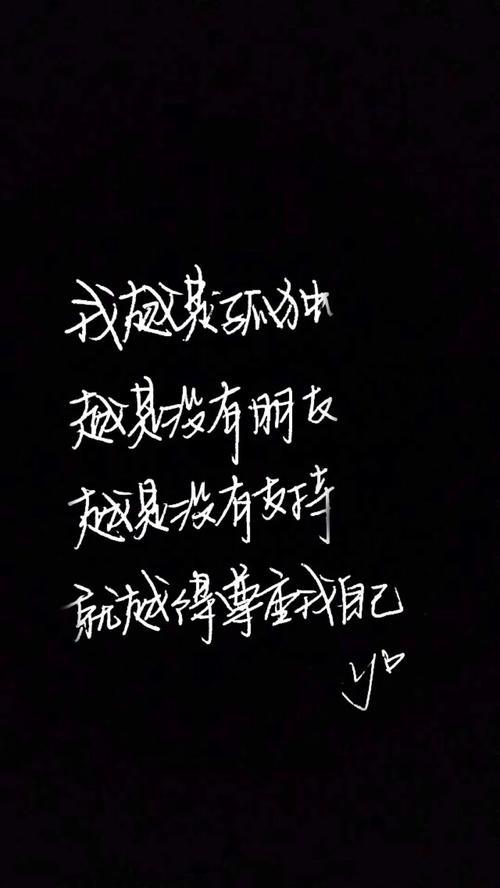 我越是孤独
越是没有朋友
越是没有支持
就越得尊重我自己